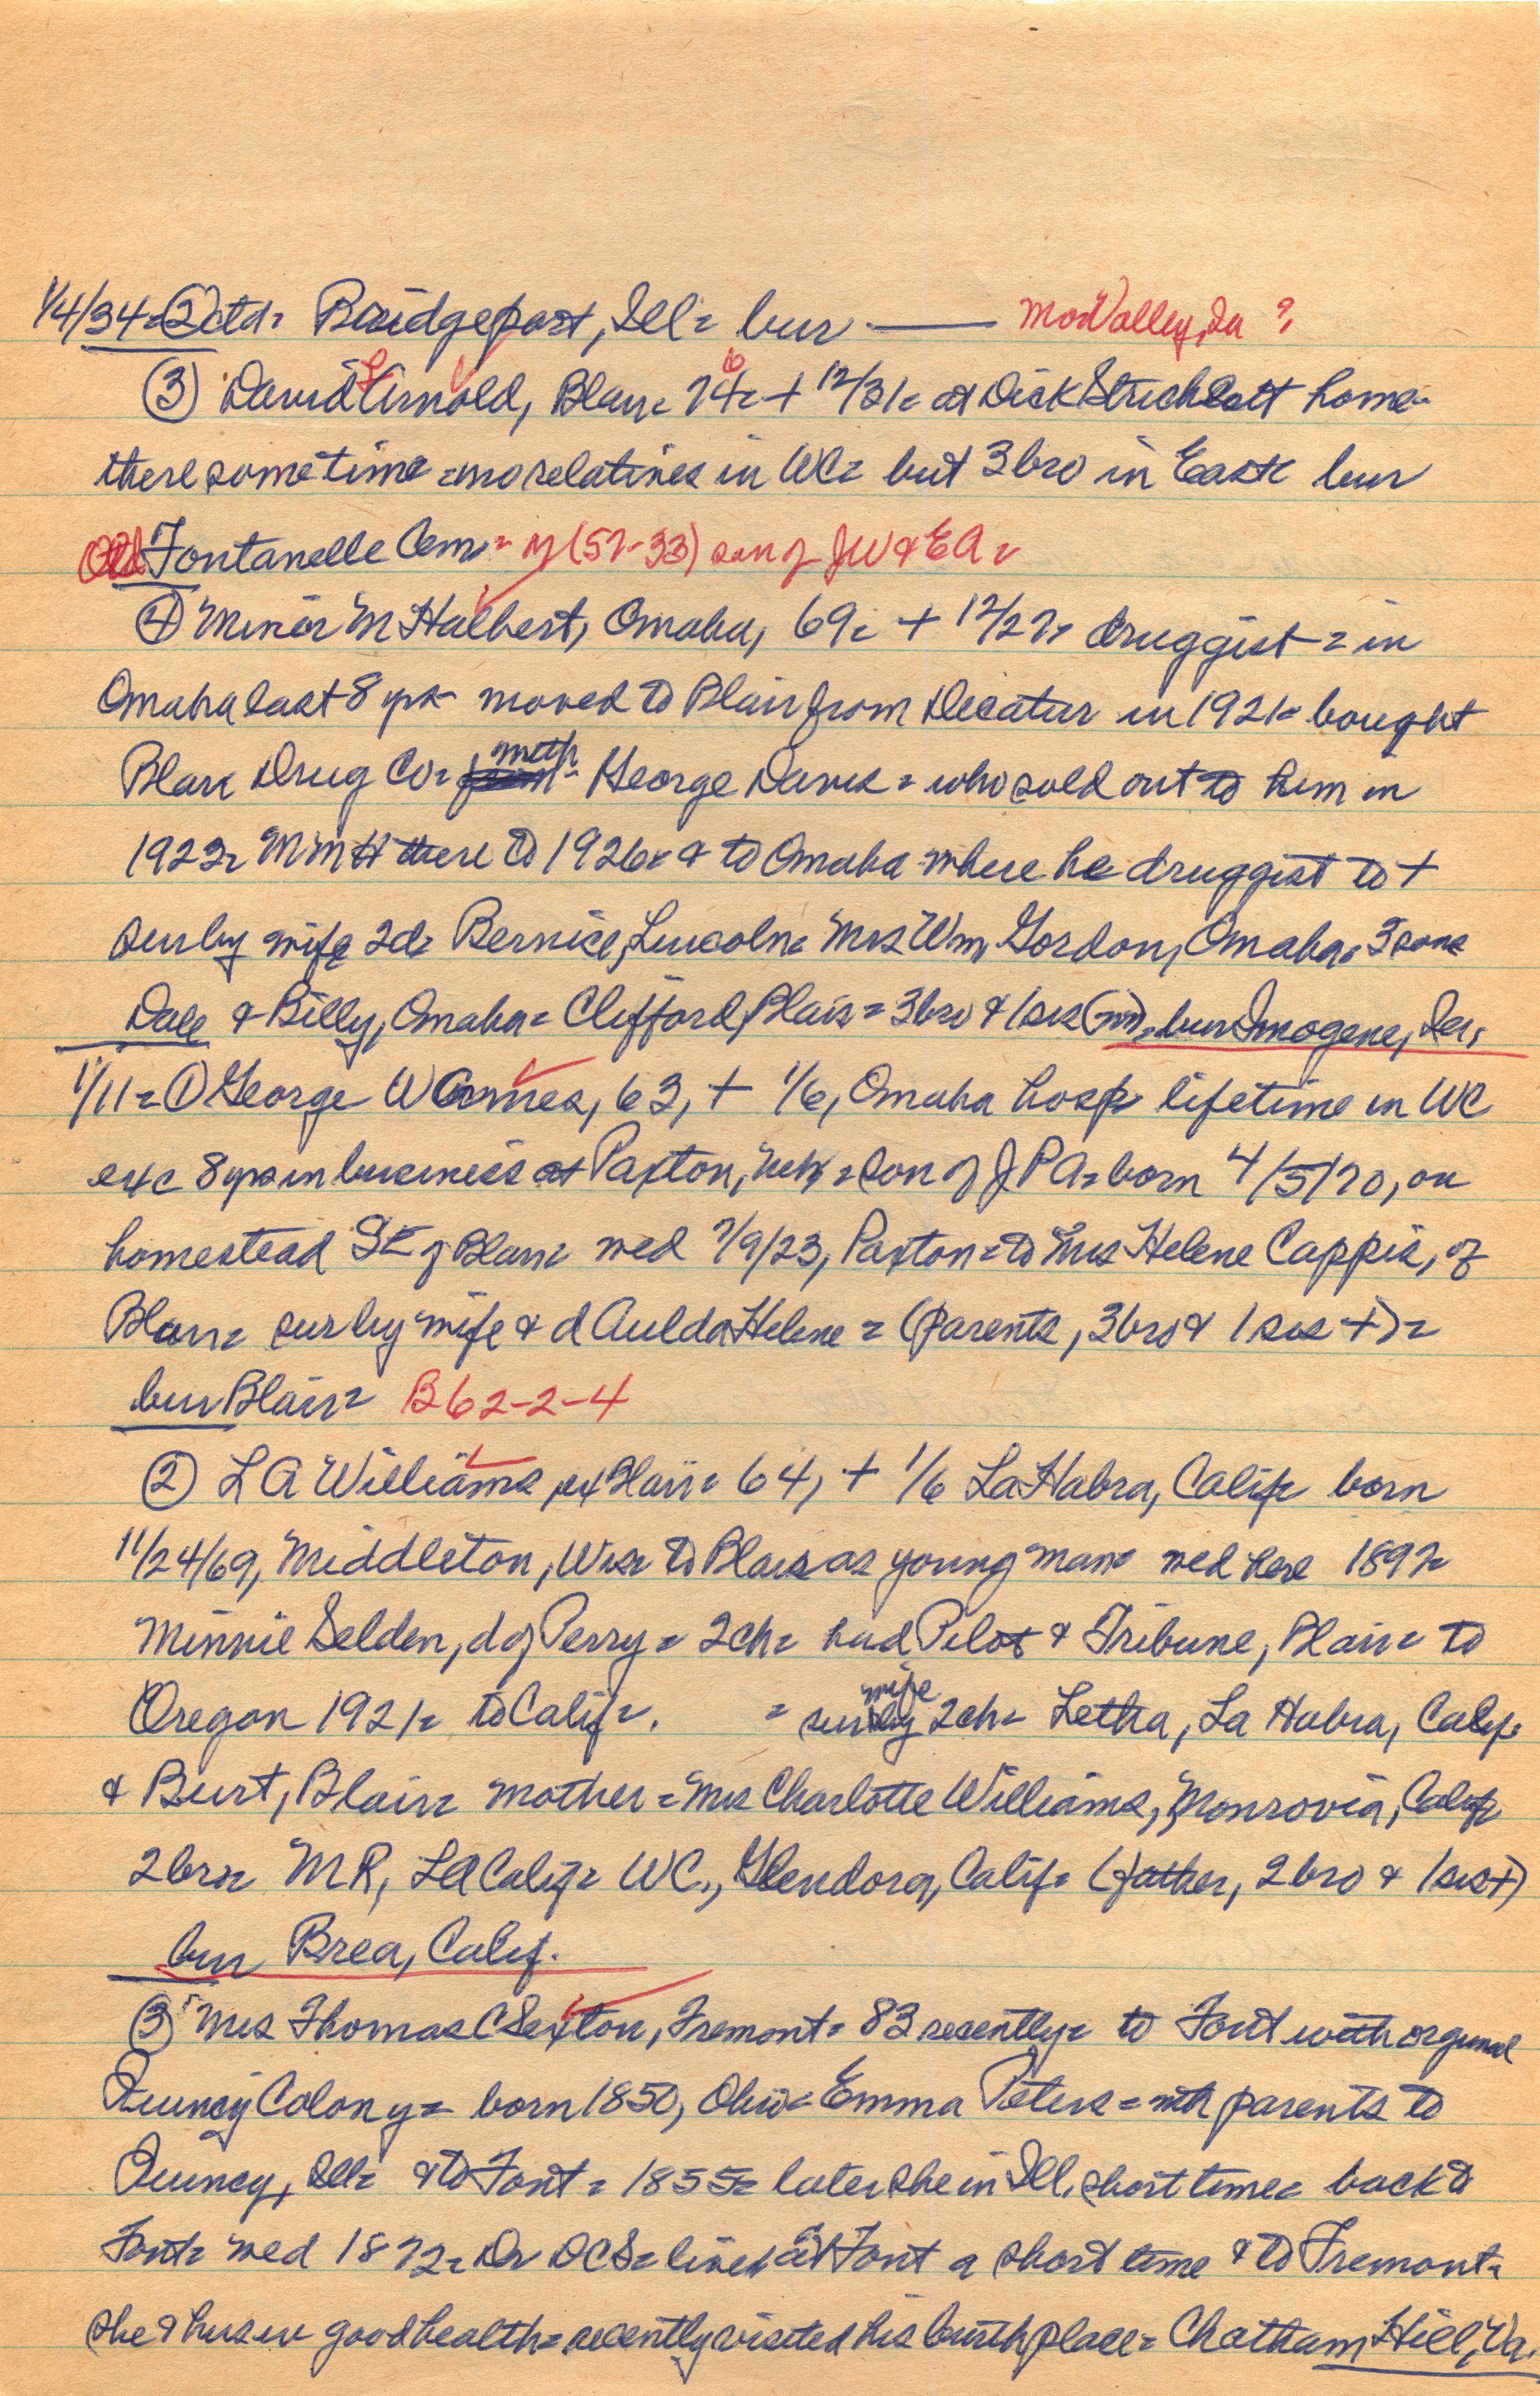 1/4/34=②ctd= Bridgeport, Ill= bur —— MoValley, Ia ?
③ David L Arnold, Blair= 76= + 12/31= at Dick Strichlett home=
there sometime = no relatives in WC= but 3 bro in East= bur
Old Fontanelle Cem= M (57-33) son of JW & EA=
④ Minor M Halbert, Omaha, 69= + 12/27= druggist = in
Omaha last 8 yrs= moved to Blair from Decatur in 1921= bought
Blair Drug Co= with George Davis = who sold out to him in
1922= MMH there to 1926= & to Omaha where he druggist to +
sur by wife 2d= Bernice, Lincoln= Mrs Wm Gordon, Omaha= 3 sons
Dale & Billy, Omaha= Clifford, Blair= 3 bro & 1 sis = bur Imogene, Ia.
1/11= ① George W Armes, 63, + 1/6, Omaha hosp= lifetime in WC
exc 8 yrs in business at Paxton, Neb = son of J P A= born 4/5/70, on
homestead SE of Blair= wed 7/9/23, Paxton= to Mrs Helene Cappis, of
Blair= sur by wife & d Aulda Helene = (parents, 3 bro & 1 sis +)=
bur Blair= B62-2-4
② L A Williams, ex Blair= 64, + 1/6 La Habra, Calif= born
11/24/69, Middleton, Wis= to Blair as young man= wed here 1897=
Minnie Selden, d of Perry = 2ch= had Pilot & Tribune, Blair= to
Oregon 1921= to Calif=. = sur by wife 2ch= Letha, La Habra, Calif=
& Burt, Blair= mother = Mrs Charlotte Williams, Monrovia, Calif=
2 bro= M R, LA Calif= W C., Glendora, Calif= (father, 2 bro & 1 sis +)
bur Brea, Calif.
③ Mrs Thomas C Sexton, Fremont= 83 recently= to Font with original
Quincy Colony= born 1850, Ohio= Emma Peters = with parents to
Quincy, Ill= & to Font = 1855= later she in Ill. short time= back to
Font= wed 1872= Dr DCS= lived at Font a short time & to Fremont=
she & hus in good health= recently visited his birthplace= Chatham Hill, Va.